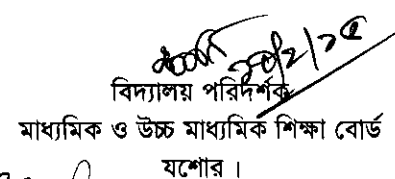 বিদ্যালয় পরিদর্শক
মাধ্যমিক ও উচ্চ মাধ্যমিক শিক্ষা বোর্ড
যশোর।